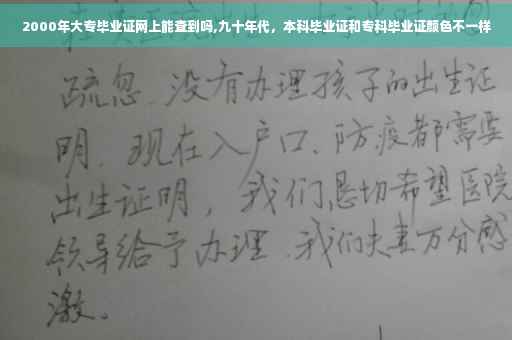 2000年大专毕业证网上能查到吗,九十年代，本科毕业证和专科毕业证颜色不一样
疏忽.没有办理孩子的出生证
明.现在入户口、防疫都需要
出生证明，我们恳切希望医院
领导给予办理.我们夫妻万分感
激。